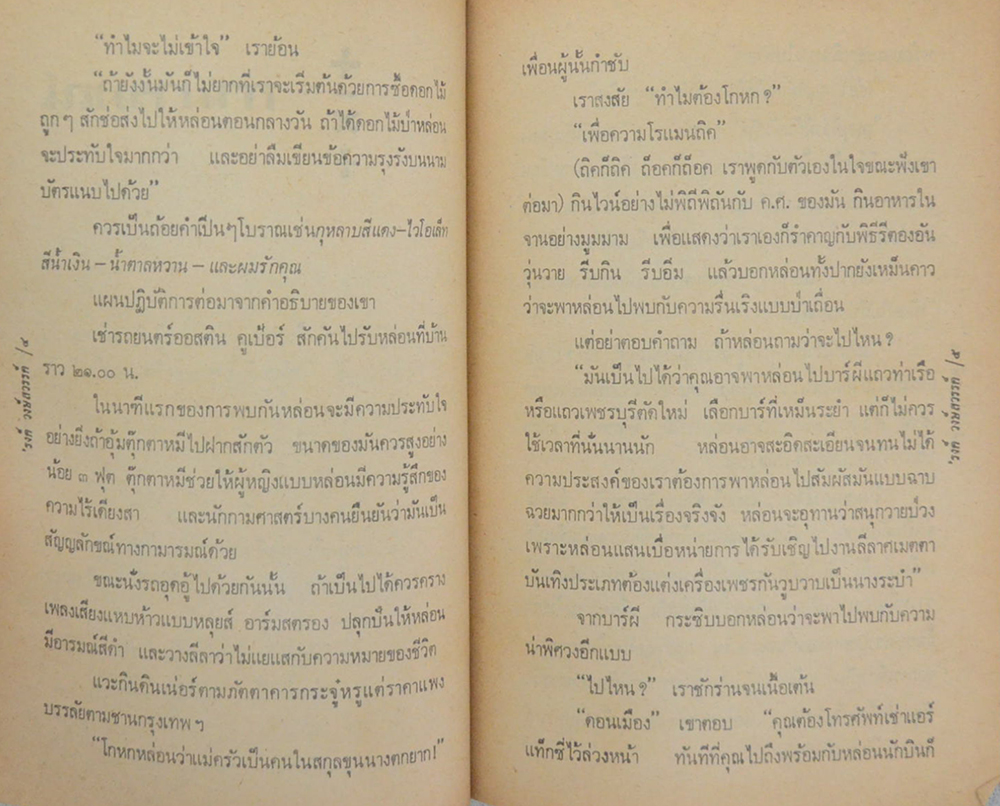 “ทำไมจะไม่เข้าใจ” เราย้อน
“ถ้ายังงั้นมันก็ไม่ยากที่เราจะเริ่มต้นด้วยการซื้อดอกไม้
ถูกๆ สักช่อส่งไปให้หล่อนตอนกลางวัน ถ้าได้ดอกไม้ป่าหล่อน
จะประทับใจมากกว่า และอย่าลืมเขียนข้อความรุงรังบนนาม
บัตรแนบไปด้วย”
ควรเป็นถ้อยคำเปิ่นๆโบราณเช่นกุหลาบสีแดง–ไวโอเล็ท
สีน้ำเงิน – น้ำตาลหวาน – และผมรักคุณ
แผนปฏิบัติการต่อมาจากคำอธิบายของเขา
เช่ารถยนตร์ออสติน คูเป้อร์ สักคันไปรับหล่อนที่บ้าน
ราว ๒๑.๐๐ น.
ในนาฑีแรกของการพบกันหล่อนจะมีความประทับใจ
อย่างยิ่งถ้าอุ้มตุ๊กตาหมีไปฝากสักตัว ขนาดของมันควรสูงอย่าง
น้อย ๓ ฟุต ตุ๊กตาหมีช่วยให้ผู้หญิงแบบหล่อนมีความรู้สึกของ
ความไร้เดียงสา และนักกามศาสตร์บางคนยืนยันว่ามันเป็น
สัญญลักขณ์ทางกามารมณ์ด้วย
ขณะนั่งรถอุดอู้ไปด้วยกันนั้น ถ้าเป็นไปได้ควรคราง
เพลงเสียงแหบห้าวแบบหลุยส์ อาร์มสตรอง ปลุกปั่นให้หล่อน
มีอารมณ์สีดำ และวางลีลาว่าไม่แยแสกับความหมายของชีวิต
แวะกินดินเน่อร์ตามภัตตาคารกระจู๋หรูแต่ราคาแพง
บรรลัยตามชานกรุงเทพ ฯ
“โกหกหล่อนว่าแม่ครัวเป็นคนในสกุลขุนนางตกยาก!”
'รงค์ วงษ์สวรรค์ /๔
เพื่อนผู้นั้นกำชับ
เราสงสัย “ทำไมต้องโกหก ?”
“เพื่อความโรแมนถิค”
(ถิคก็ถิค ถ็อคก็ถ็อค เราพูดกับตัวเองในใจขณะฟังเขา
ต่อมา) กินไวน์อย่างไม่พิถีพิถันกับ ค.ศ. ของมัน กินอาหารใน
จานอย่างมูมมาม เพื่อแสดงว่าเราเองก็รำคาญกับพิธีรีตองอัน
วุ่นวาย รีบกิน รีบอิ่ม แล้วบอกหล่อนทั้งปากยังเหม็นคาว
ว่าจะพาหล่อนไปพบกับความรื่นเริงแบบป่าเถื่อน
แต่อย่าตอบคำถาม ถ้าหล่อนถามว่าจะไปไหน ?
“มันเป็นไปได้ว่าคุณอาจพาหล่อนไปบาร์ผีแถวท่าเรือ
หรือแถวเพชรบุรีตัดใหม่ เลือกบาร์ที่เหม็นระยำ แต่ก็ไม่ควร
ใช้เวลาที่นั่นนานนัก หล่อนอาจสะอิดสะเอียนจนทนไม่ได้
ความประสงค์ของเราต้องการพาหล่อนไปสัมผัสมันแบบฉาบ
ฉวยมากกว่าให้เป็นเรื่องจริงจัง หล่อนจะอุทานว่าสนุกวายป่วง
เพราะหล่อนแสนเบื่อหน่ายการได้รับเชิญไปงานลีลาศเมตตา
บันเทิงประเภทต้องแต่งเครื่องเพชรกันวูบวาบเป็นนางระบำ”
จากบาร์ผี กระซิบบอกหล่อนว่าจะพาไปพบกับความ
น่าพิศวงอีกแบบ
“ไปไหน ?” เราชักร่านจนเนื้อเต้น
“ดอนเมือง” เขาตอบ “คุณต้องโทรศัพท์เช่าแอร์
แท็กซี่ไว้ล่วงหน้า ทันทีที่คุณไปถึงพร้อมกับหล่อนนักบินก็
'รงค์ วงษ์สวรรค์ /๕